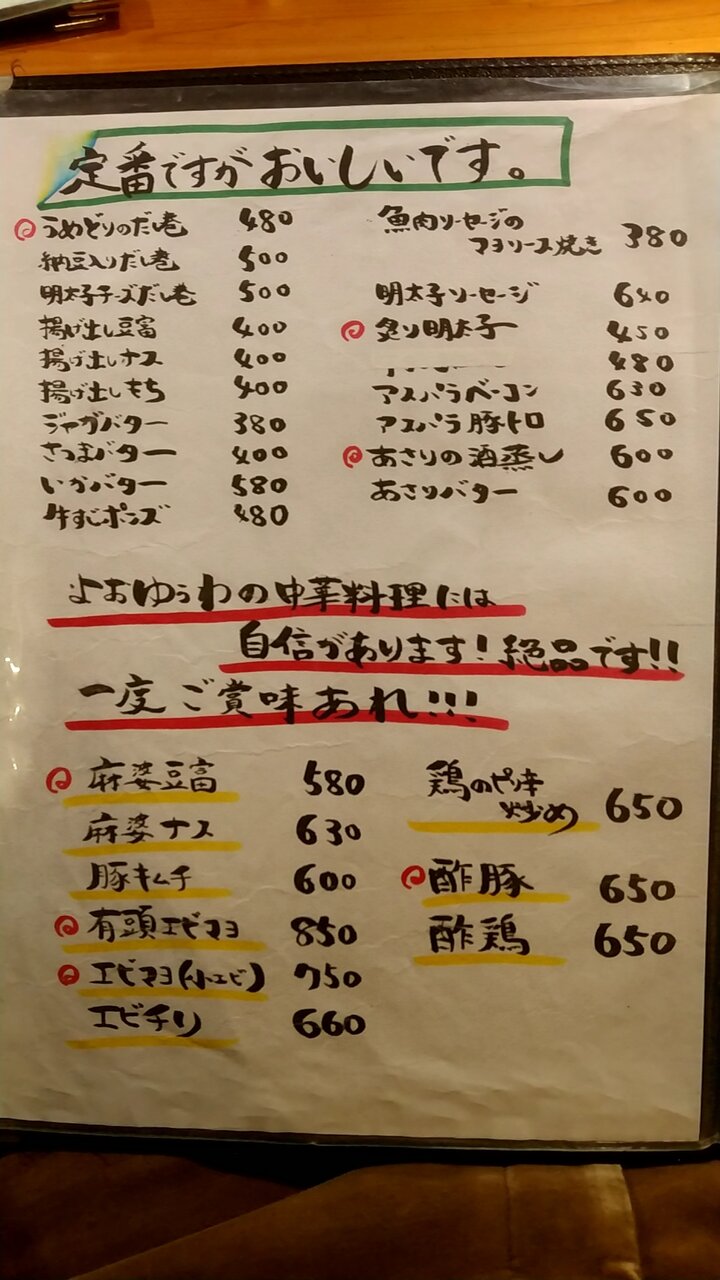 定番ですがおいしいです。
うめどりのだし巻 480
納豆入りだし巻 500
明太子チーズだし巻 500
揚げ出し豆富 400
揚げ出しナス 400
揚げ出しもち 400
ジャガバター 380
さつまバター 400
いかバター 580
牛すじポンズ 480
魚肉ソーセージの
マヨソース焼き 380
明太子ソーセージ 640
炙り明太子 450
480
アスパラベーコン 630
アスパラ豚トロ 650
あさりの酒蒸し 600
あさりバター 600
よおゆぅわの中華料理には
自信があります！絶品です!!
一度ご賞味あれ!!!
麻婆豆富 580
麻婆ナス 630
豚キムチ 600
有頭エビマヨ 850
エビマヨ(小エビ) 750
エビチリ 660
鶏のピリ辛
炒め 650
酢豚 650
酢鶏 650